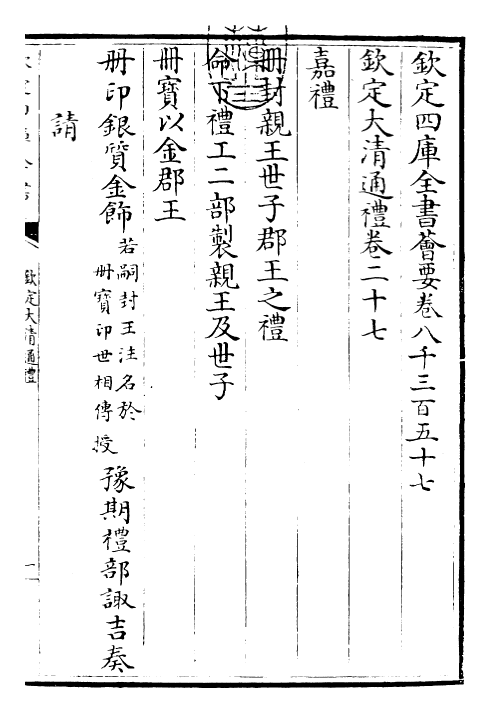 欽定四庫全書薈要卷八千三百五十七
欽定大清通禮卷二十七
嘉禮
冊封親王世子郡王之禮
命下禮工二部製親王及世子
冊寶以金郡王
冊印銀質金飾若嗣封王注名於冊寶印世相傳授豫期禮部諏吉奏
請
欽定大清通禮